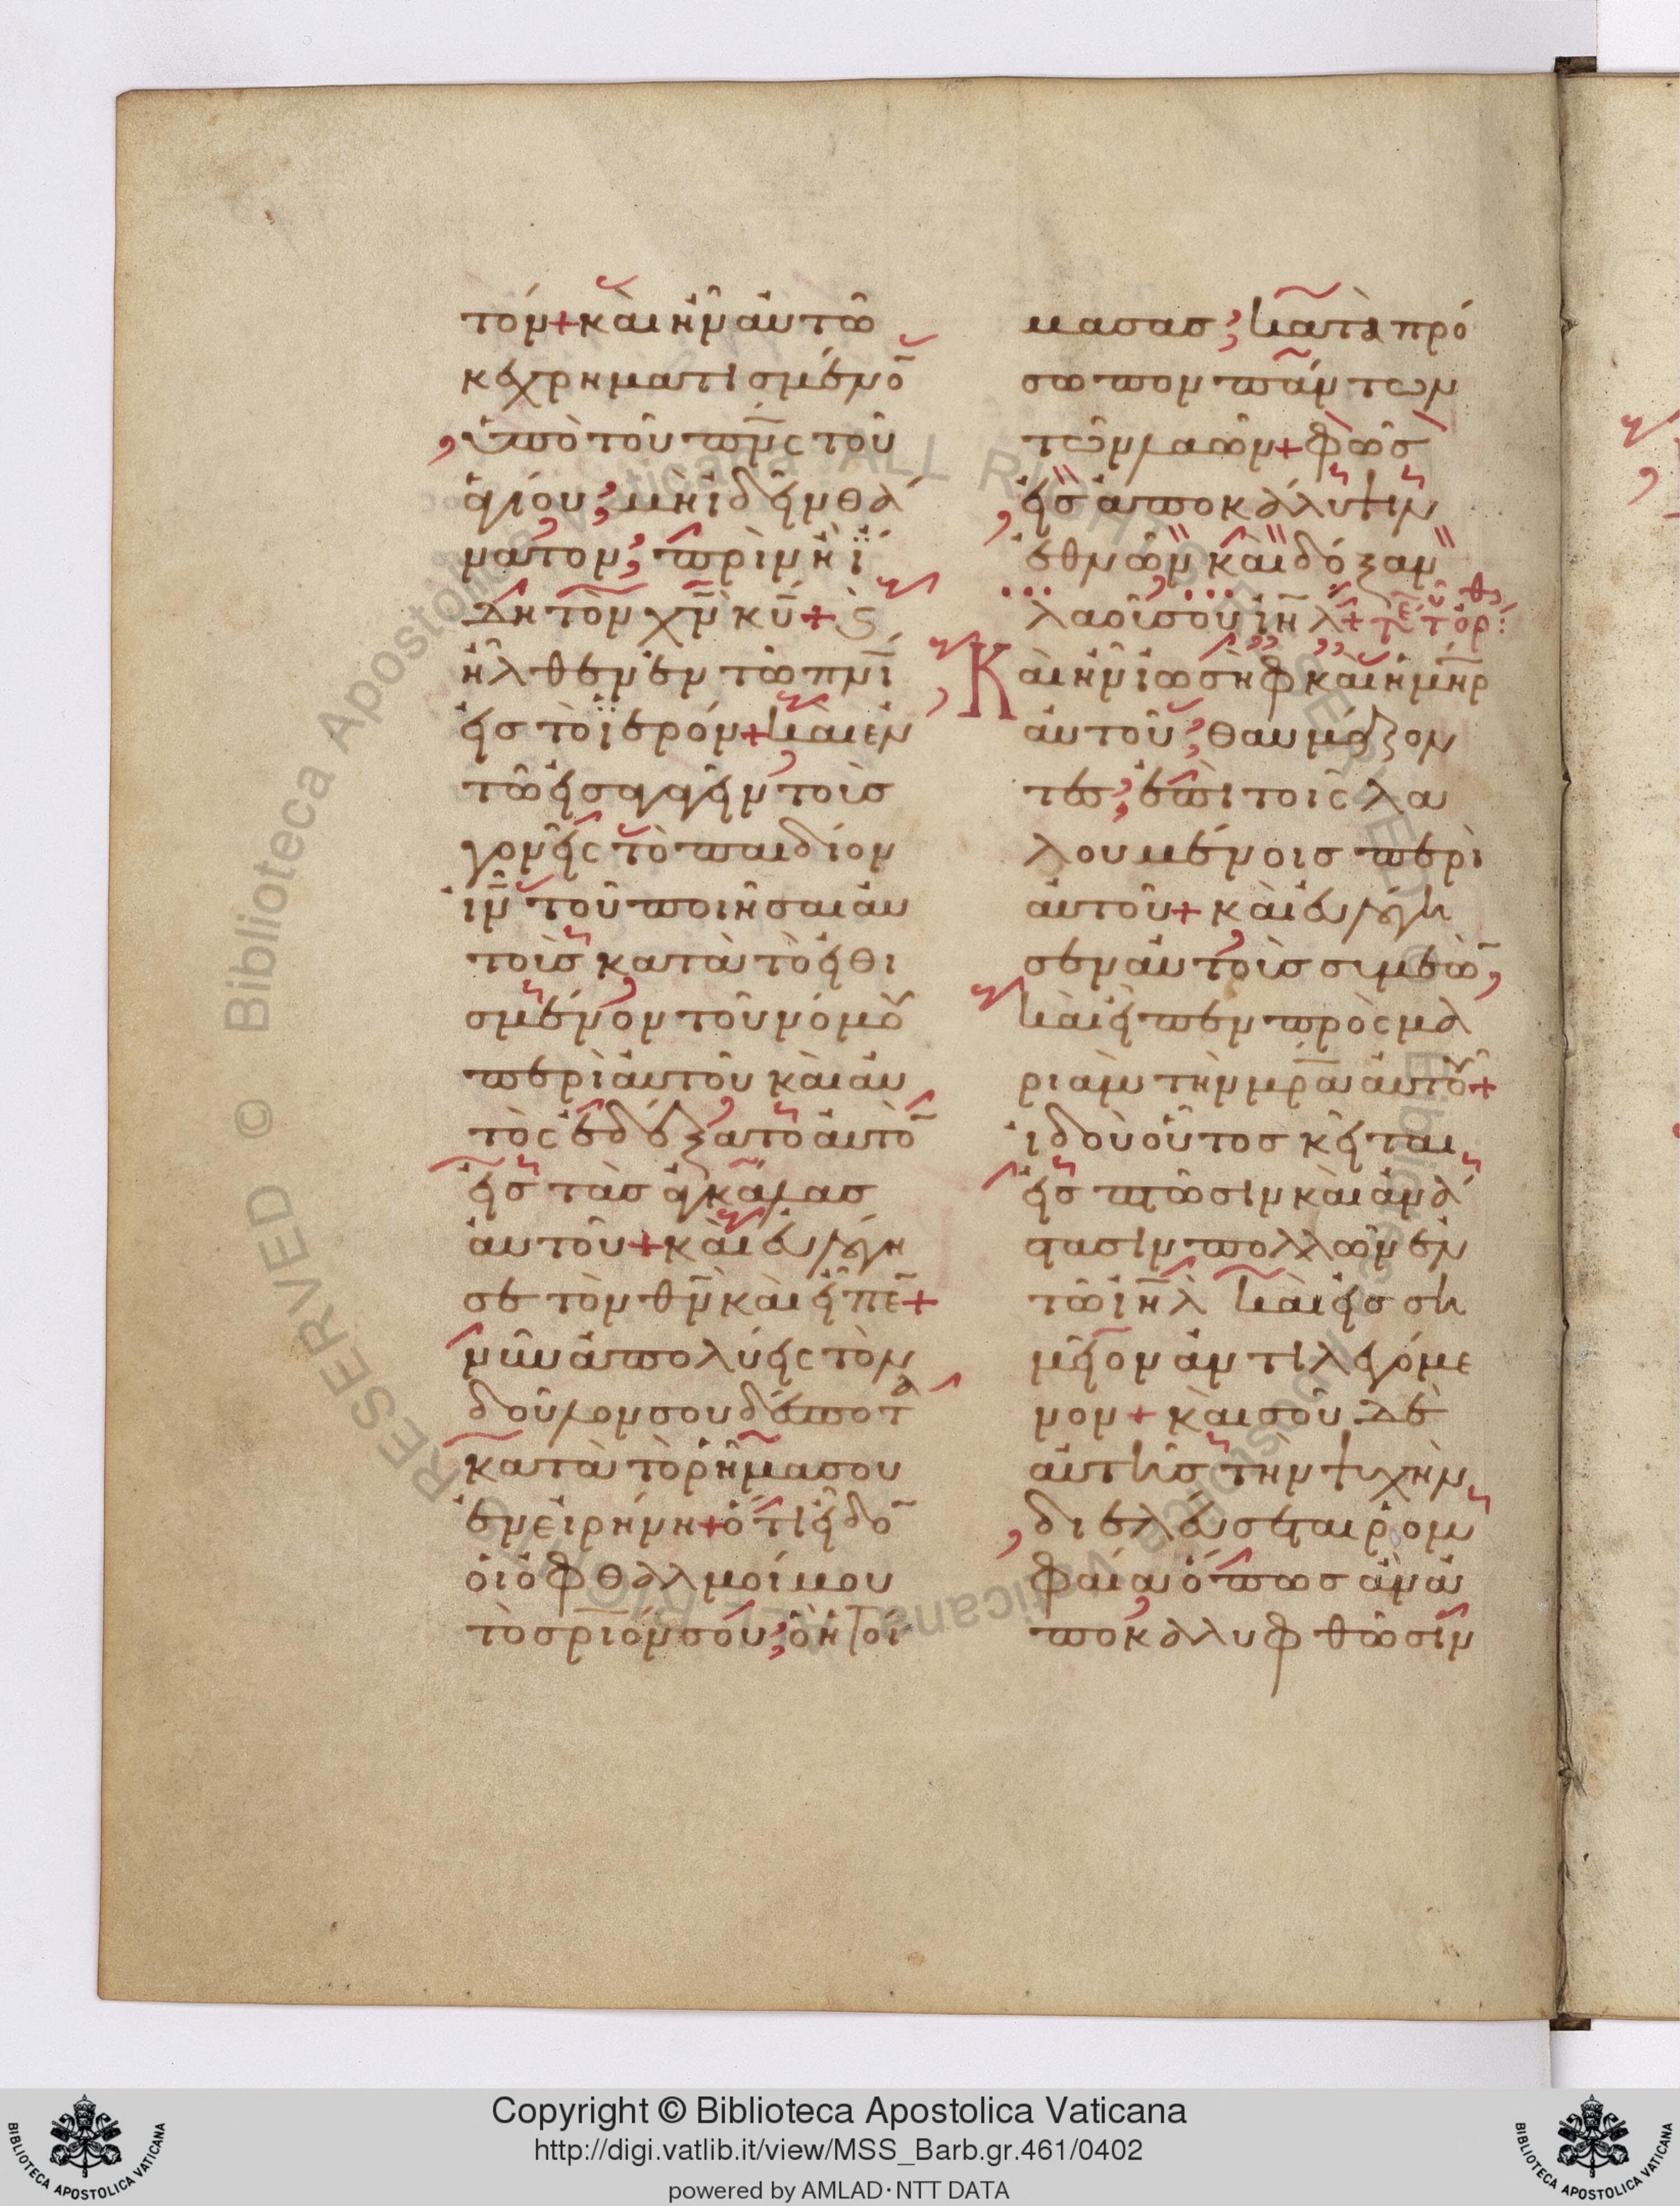 τόν + καὶ ἦν αὐτῶ
κεχρηματισμένο̄
ὑπὸ τοῦ π̅ν̅ς τοῦ
ἁγίου, μὴ ἰδεῖν θά
νατον, πρὶν ἢ ἴ
δη τὸν χ̅ν̅ κ̅υ̅ + ϛ
ἦλθεν ἐν τῶ π̅ν̅ι̅
εἰς τὸ ἱερόν + καὶ ἐν
τῶ εἰσαγαγεῖν τοὺς
γονεῖς τὸ παιδίον
ἰ̅ν̅ τοῦ ποιῆσαι αὐ
τοὺς κατὰ τὸ εἰθι
σμένον τοῦ νόμου
περὶ αὐτοῦ καὶ αὐ
τὸς ἐδέξατο αὐτὸ
εἰς τὰς ἀγκάλας
αὐτοῦ + καὶ εὐλόγη
σε τὸν θ̅ν̅ καὶ εἶπε̄ +
νῦν ἀπολύεις τὸν
δοῦλον σου δέσποτα
κατὰ τὸ ῥῆμα σου
ἐν εἰρήνη + ὅτι εἶδο̄
οἱ ὀφθαλμοί μου
τὸ σ̅ρ̅ιόν σου, ὃ ἡτοί
μασας, κατὰ πρό
σωπον πάντων
τῶν λαῶν + φῶς
εἰς ἀποκάλυψιν
ἐθνῶν καὶ δόξαν
λαοῦ σου ἰ̅η̅λ̅ + τε τ ορ
Καὶ ἦν ἰωσὴφ καὶ ἡ μ̅η̅ρ
αὐτοῦ, θαυμάζον
τες, ἐπὶ τοῖς λα
λουμένοις περὶ
αὐτοῦ + καὶ εὐλόγη
σεν αὐτοὺς συμεώ̄
καὶ εἶπεν πρὸς μα
ριὰμ τὴν μ̅ρ̅α̅ αὐτοῦ +
ἰδοὺ οὗτος κεῖται
εἰς πτῶσιν καὶ ἀνά
στασιν πολλῶν ἐν
τῶ ἰ̅η̅λ̅ καὶ εἰς ση
μεῖον ἀντιλεγόμε
νον + καὶ σοῦ δὲ
αὐτῆς τὴν ψυχὴν
διελεύσεται ῥομ
φαία, ὅπως ἂν ἀ
ποκαλυφθῶσιν
Copyright © Biblioteca Apostolica Vaticana
http://digi.vatlib.it/view/MSS_Barb.gr.461/0402
powered by AMLAD·NTT DATA